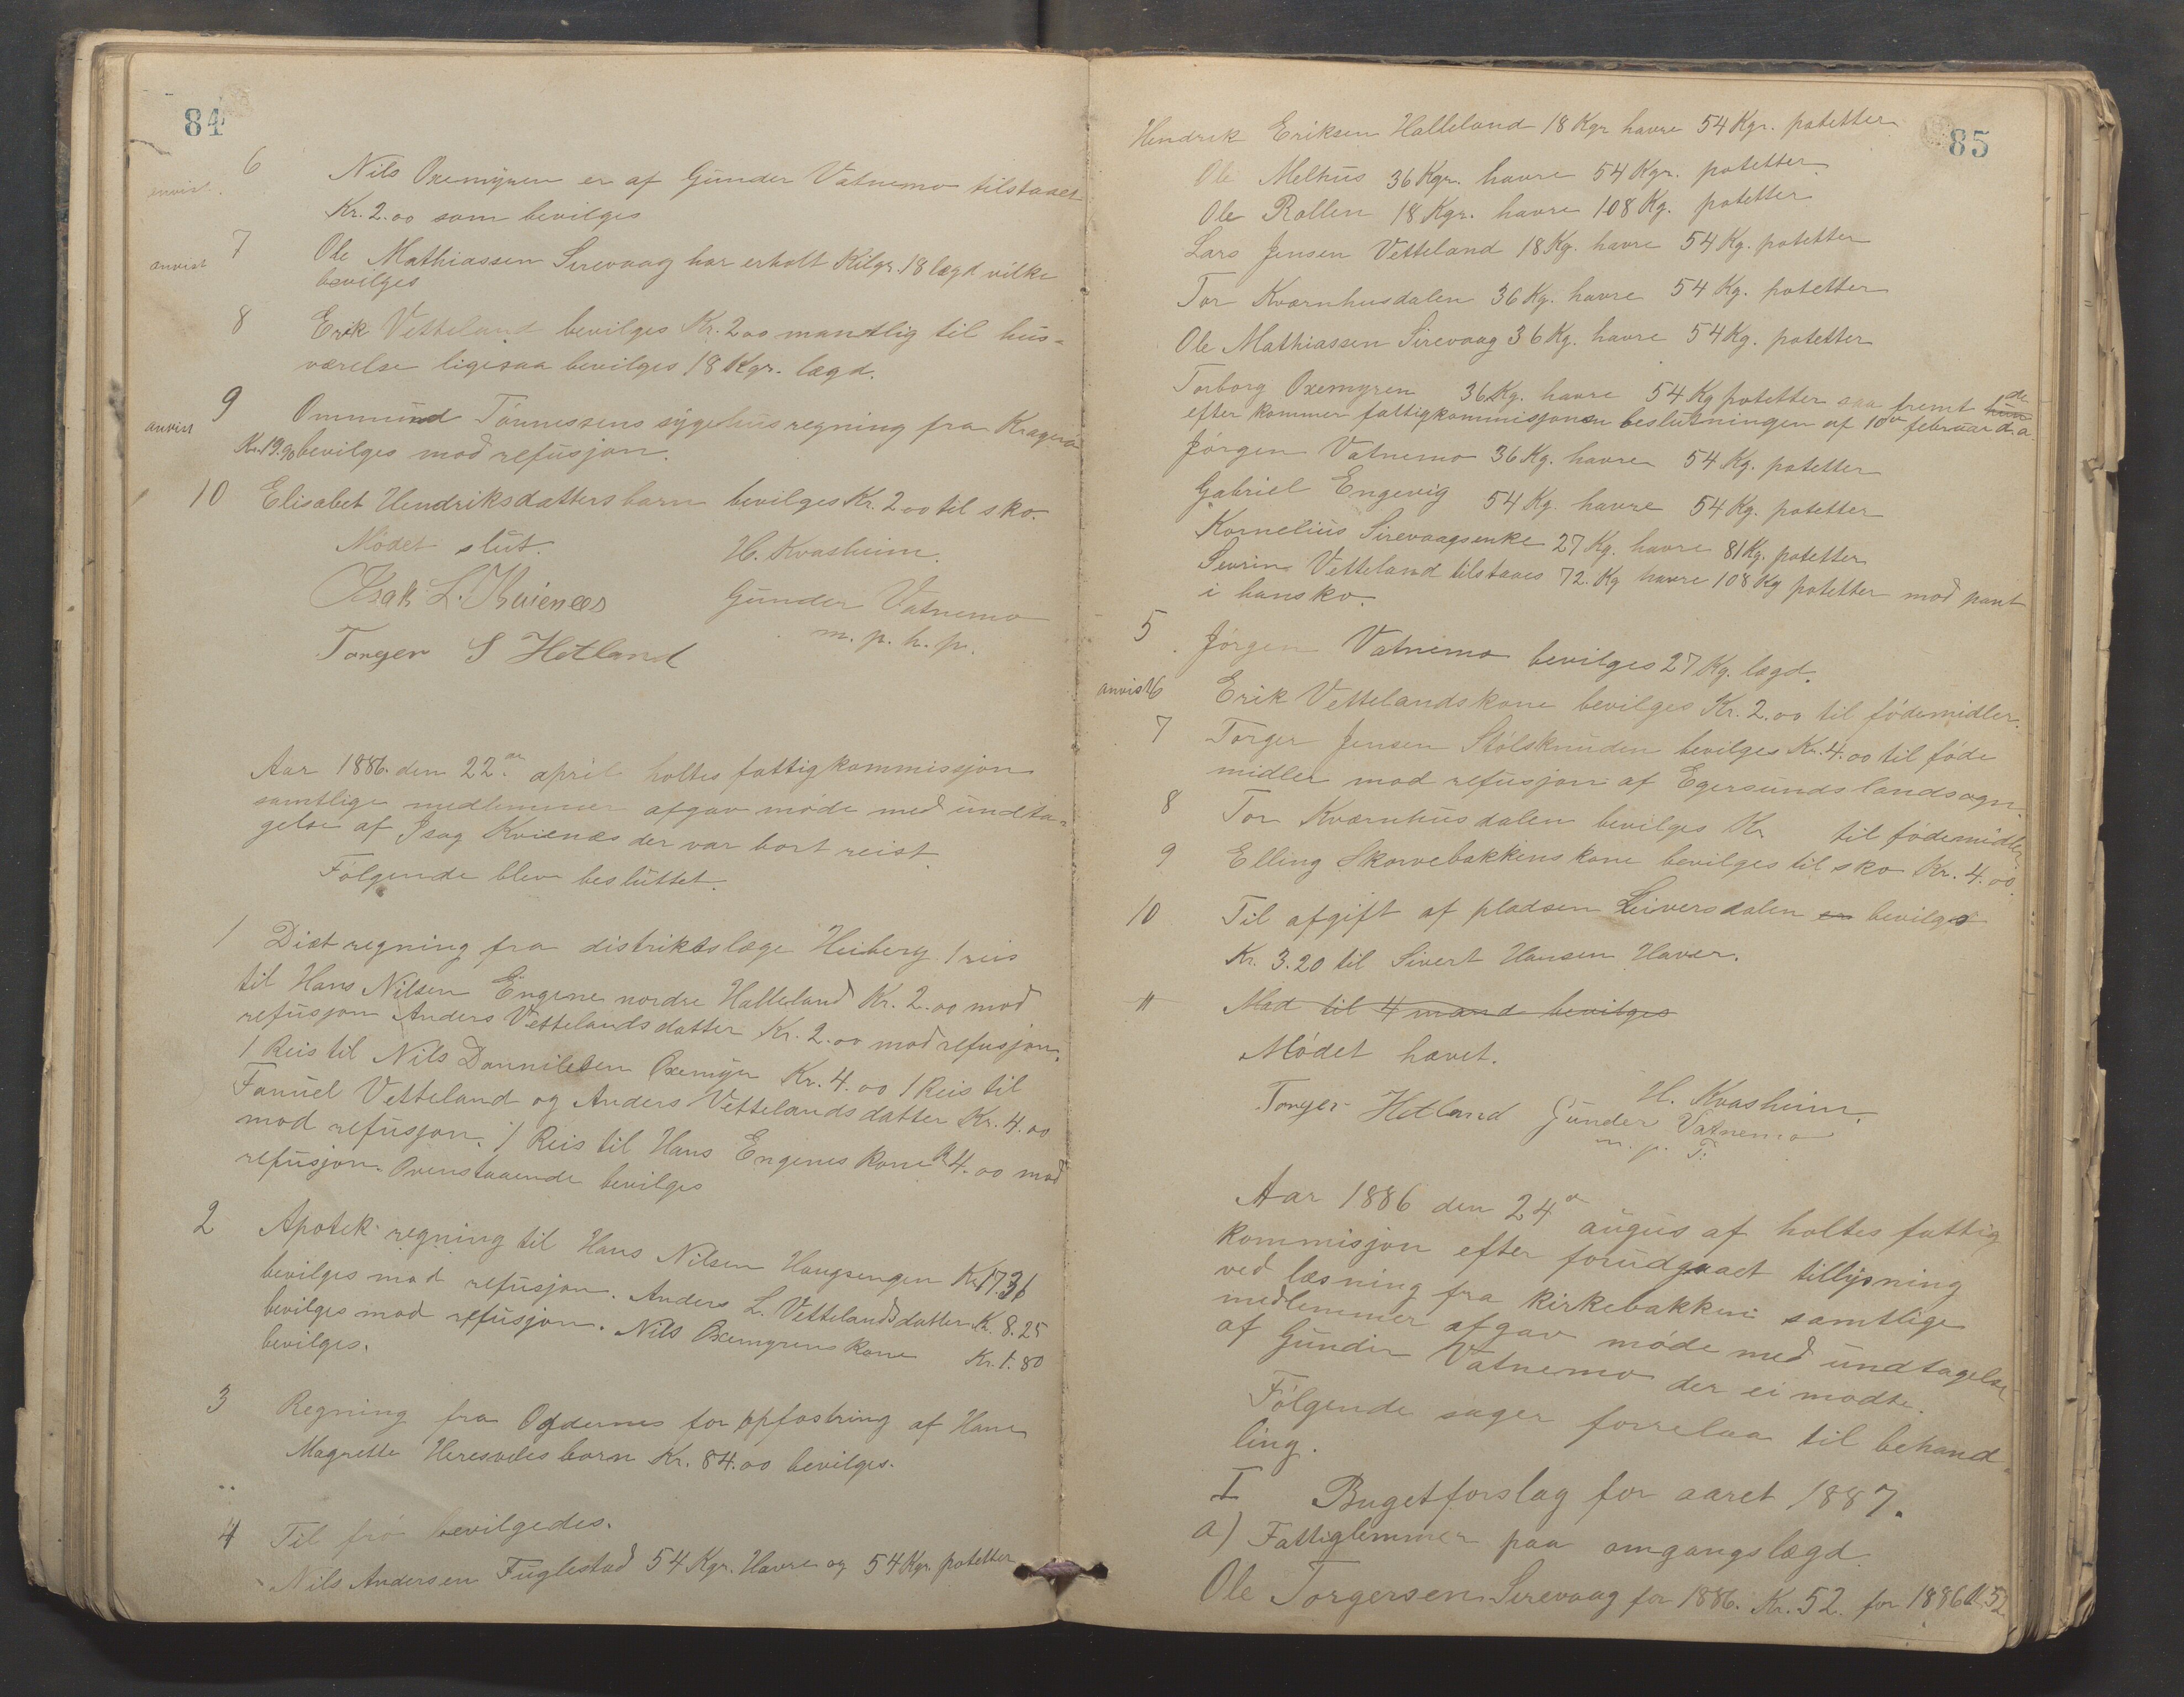 84
6 Nils Oxemyren er af Gunder Vatnemo tilstaaet
anvist
Kr. 2.00 som bevilges
7 Ole Mathiassen Sirevaag har erholt Kilgr. 18 lægd vilke
anvist
bevilges
8 Erik Vetteland bevilges Kr. 2 00 manedlig til hus-
værelse ligesaa bevilges 18 Kgr. lægd.
9 Ommund Tónnessens sygehus regning fra Kragerö
anvist
Kr. 19.90 bevilges mod refusjon.
10 Elisabet Hendriksdatters barn bevilges Kr. 2 00 til sko.
Módet slut. H. Kvasheim.
Isak L. Kvienæs Gunder Vatnemo
m. p. h. p.
Torger S Hetland
Aar 1886. den 22de april holtes fattigkommissjon
samtlige medlemmer afgav móde med undta-
gelse af Isag Kvienæs der var bort reist.
Folgende blev besluttet.
1 Diæt regning fra distriktslæge Heiberg 1 reis
til Hans Nilsen Engene nordre Halleland Kr. 2.00 mod
refusjon Anders Vettelands datter Kr. 2.00 mod refusjon.
1 Reis til Nils Dannilesen Oxemyr Kr. 4.00 1 Reis til
Fanuel Vetteland og Anders Vettelands datter Kr. 4.00
mod refusjon. 1 Reis til Hans Engenes kone Kr 4.00 mod
refusjon. Ovenstaaende bevilges
2 Apotek regning til Hans Nilsen Haugsengen Kr. 17.36
bevilges mod refusjon. Anders L. Vettelands datter Kr. 8.25
bevilges mod refusjon. Nils Oxemyrens kone Kr. 1.80
bevilges.
3 Regning fra Ogdernes for opfostring af Hane
Magrette Heresvedes barn Kr. 84.00 bevilges.
4 Til fró bevilgedes.
Nils Andersen Fuglestad 54 Kgr. Havre og 54 Kgr. potetter
85
Hendrik Eriksen Halleland 18 Kgr havre 54 Kgr. potetter
Ole Melhus 36 Kgr. havre 54 Kgr. potetter
Ole Rallen 18 Kgr. havre 108 Kg. potetter
Lars Jensen Vetteland 18 Kg. havre 54 Kg. potetter
Tor Kvornhusdalen 36 Kg. havre 54 Kg. potetter
Ole Mathiassen Sirevaag 36 Kg. havre 54 Kg. potetter
Torborg Oxemyren 36 Kg. havre 54 Kg potetter saa fremt hun de
efter kommer fattigkommisjonen beslutningen af 10de februar d. a.
Jórgen Vatnemo 36 Kg. havre 54 Kg. potetter
Gabriel Engevig 54 Kg. havre 54 Kg. potetter
Kornelius Sirevaagsenke 27 Kg. havre 81 Kg. potetter
Sivrin Vetteland tilstaaes 72. Kg havre 108 Kg potetter mod pant
i hans ko.
5 Jórgen Vatnemo bevilges 27 Kg. lægd.
anvist 6 Erik Vettelandskone bevilges Kr. 2.00 til fódemidler.
7 Torger Jensen Stólsknuden bevilges Kr. 4.00 til fóde
midler mod refusjon af Egersunds landsogn.
8 Tor Kværnhusdalen bevilges Kr til fódemidler
9 Elling Skorvebakkens kone bevilges til sko Kr. 4.00.
10 Til afgift af pladsen Leiversdalen en bevilges
Kr. 3.20 til Sivert Hansen Haver.
11 Mad til 4 mand bevilges
Módet hævet.
H. Kvasheim.
Torger Hetland Gunder Vatnemo
m. p. P.
Aar 1886 den 24de augus af holtes fattig
kommisjon efter forudgaaet tillysning
ved læsning fra kirkebakken samtlige
medlemmer afgav móde med undtagelse
af Gunder Vatnemo der ei modte.
Fólgende sager forrelaa til behand-
ling.
I Bugetforslag for aaret 1887.
a) Fattiglemmer paa omgangslægd.
Ole Torgersen Sirevaag for 1886. Kr. 52. for 1886 Kr. 52